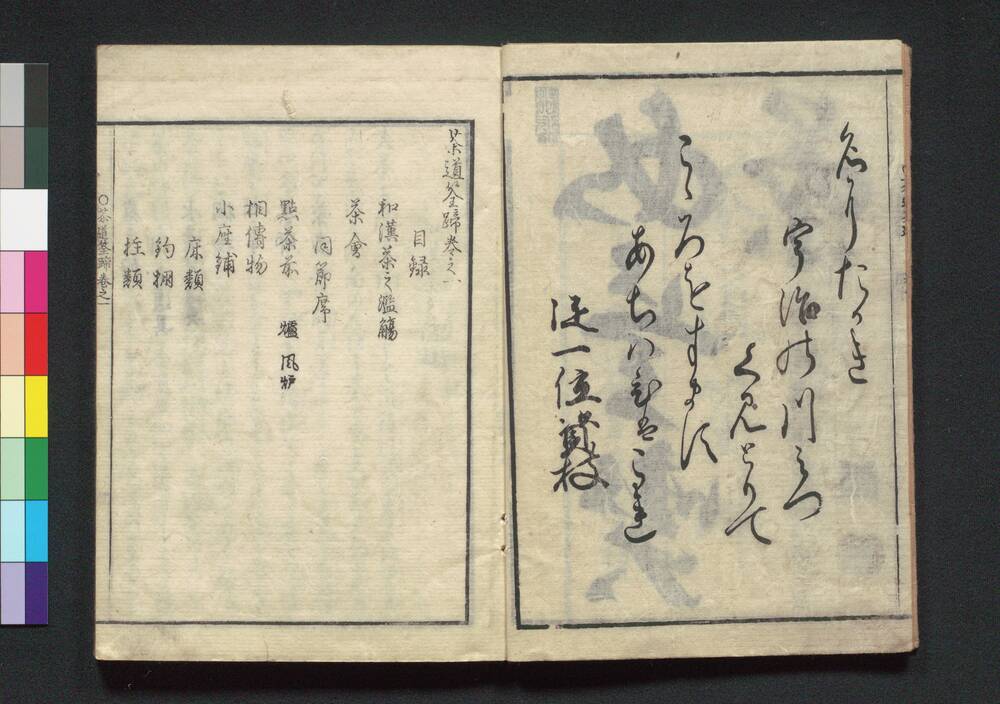 名にしたかき
宇治の川みつ
くみとりて
こゝろをすます
あちはひはこれ
従一位資枝
茶道筌蹄巻之一
目録
和漢茶之濫觴
茶會
同節席
點茶茶 爐 風炉
相傳物
小座鋪
床類
釣棚
柱類
〇茶道筌蹄 巻之一